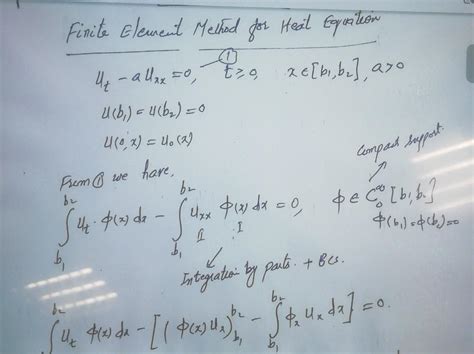 Finite Element Method for Heat Equation
①
u_t - a u_xx = 0, t ≥ 0, x ∈ [b₁, b₂], a > 0
u(b₁) = u(b₂) = 0
u(0, x) = u₀(x)
compact support
From ① we have,
∫_{b₁}^{b₂} u_t · φ(x) dx - ∫_{b₁}^{b₂} u_xx φ(x) dx = 0, φ ∈ C₀^∞ [b₁, b₂]
II I φ(b₁) = φ(b₂) = 0
Integration by parts + BCs.
∫_{b₁}^{b₂} u_t φ(x) dx - [ (φ(x) u_x)_{b₁}^{b₂} - ∫_{b₁}^{b₂} φ_x u_x dx ] = 0.